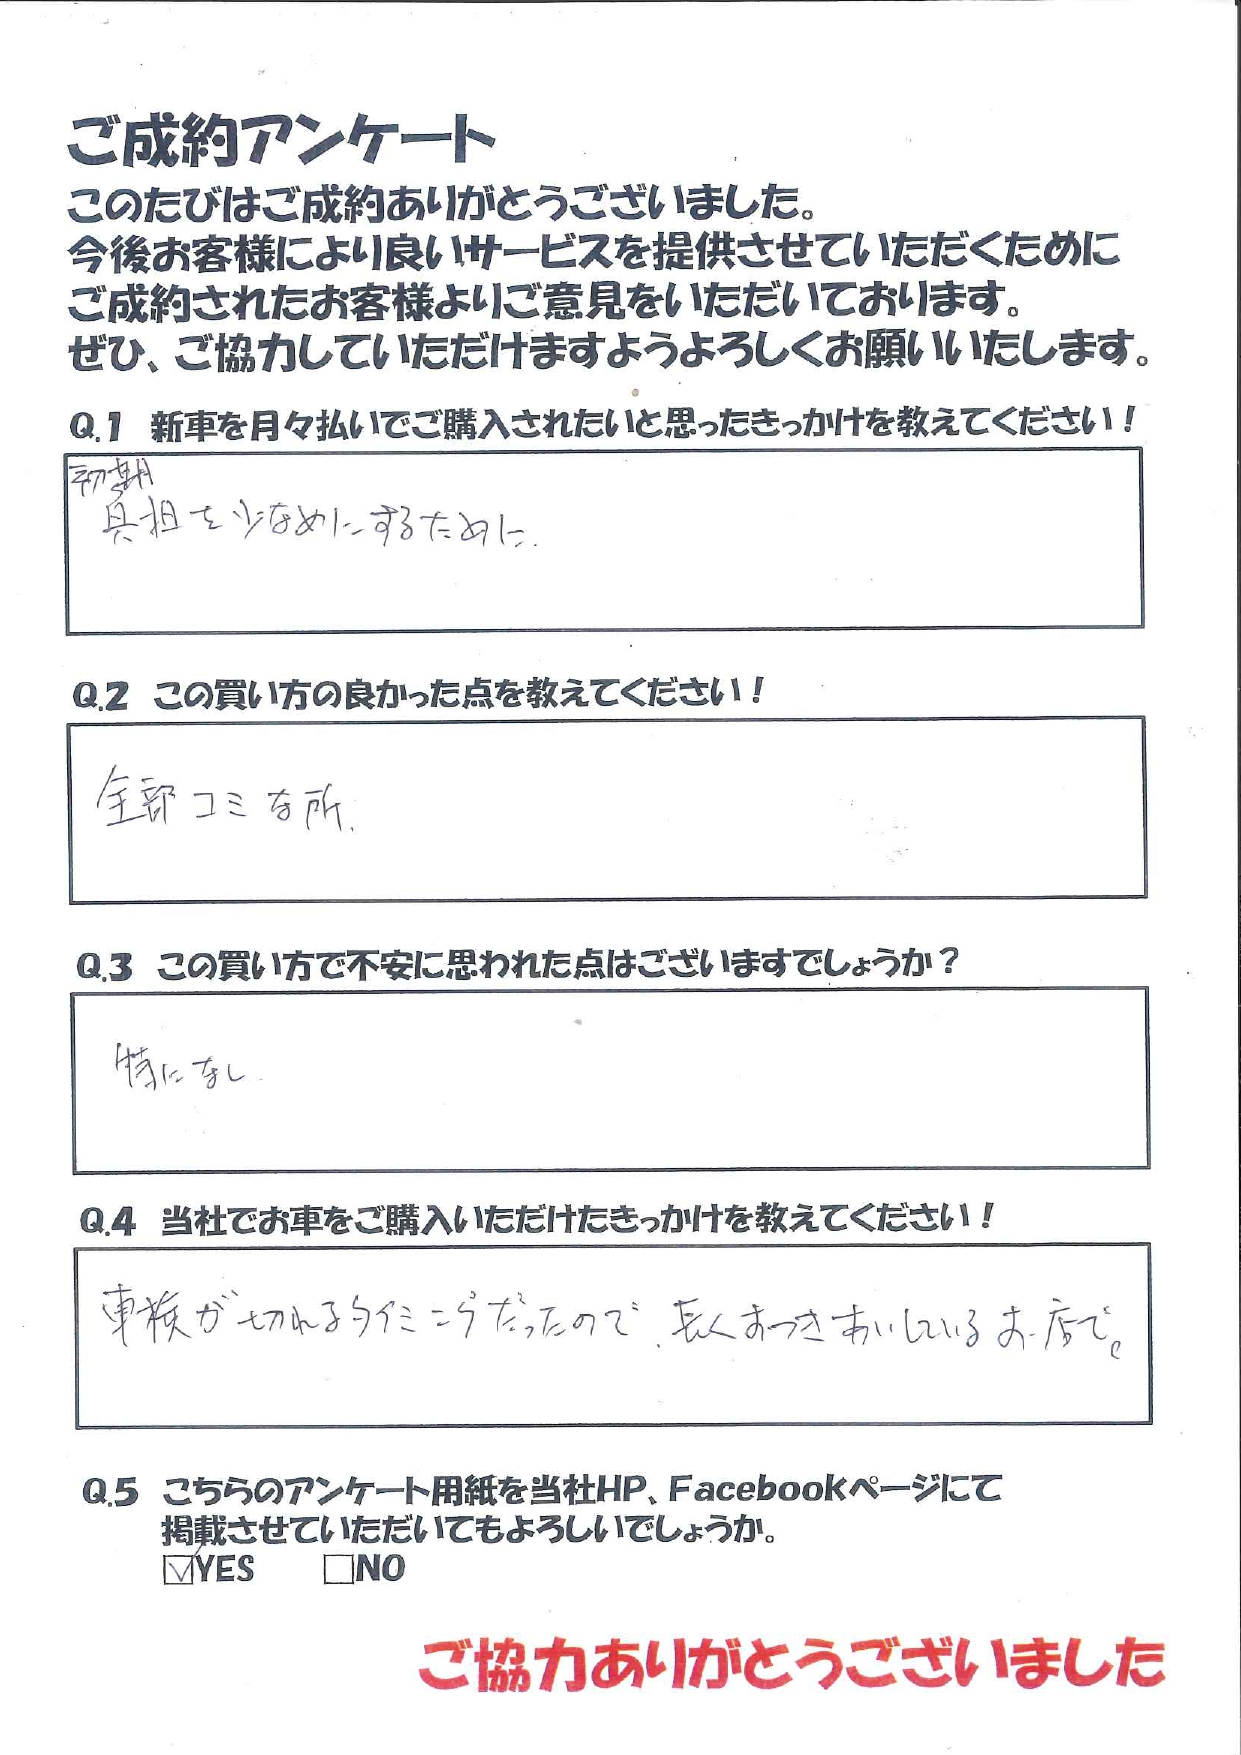 ご成約アンケート
このたびはご成約ありがとうございました。
今後お客様により良いサービスを提供させていただくために
ご成約されたお客様よりご意見をいただいております。
ぜひ、ご協力していただけますようよろしくお願いいたします。
Q.1 新車を月々払いでご購入されたいと思ったきっかけを教えてください！
初期
負担を少なめにするために.
Q.2 この買い方の良かった点を教えてください！
全部コミな所.
Q.3 この買い方で不安に思われた点はございますでしょうか？
特になし
Q.4 当社でお車をご購入いただけたきっかけを教えてください！
車検が切れるタイミングだったので、長くおつきあいしているお店で。
Q.5 こちらのアンケート用紙を当社HP、Facebookページにて
掲載させていただいてもよろしいでしょうか。
☑YES □NO
ご協力ありがとうございました